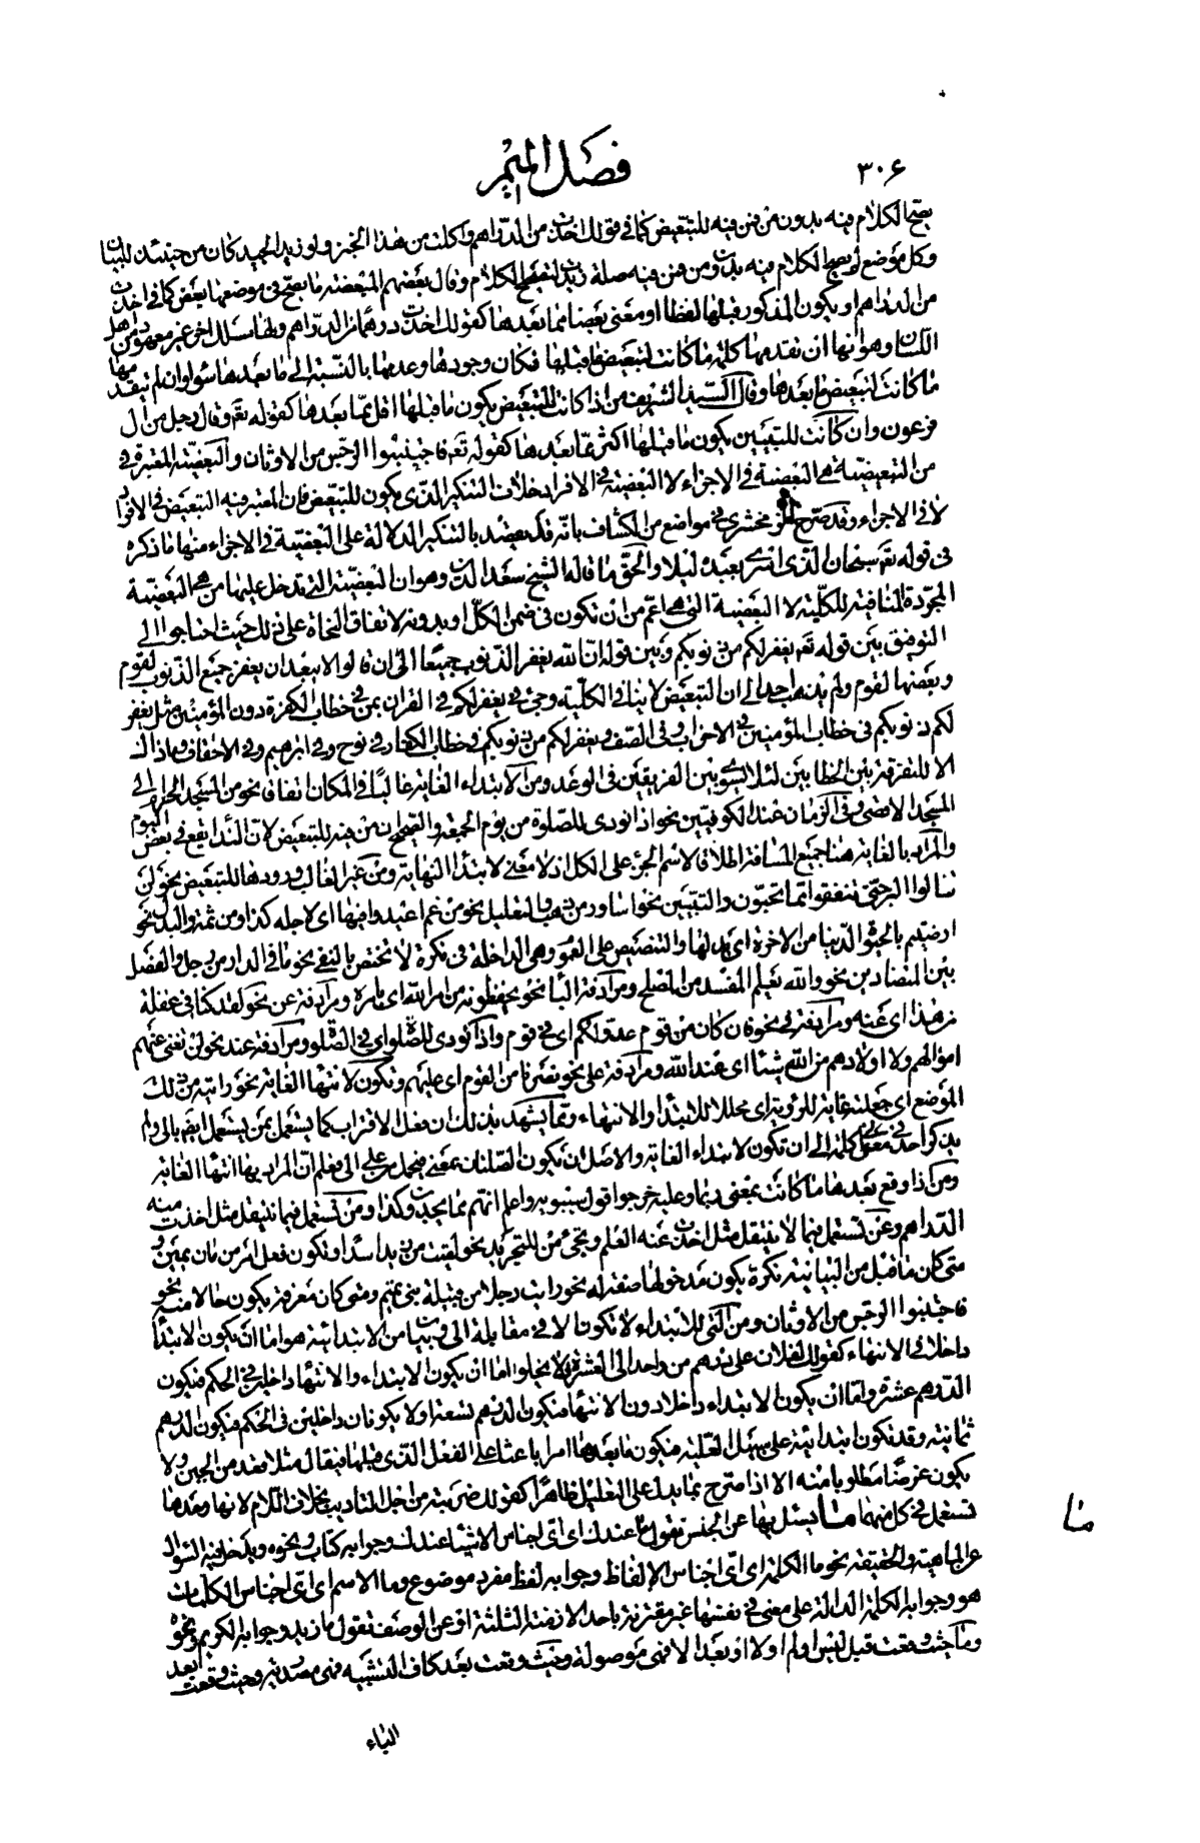 ٣٠۶
فصل الميم
يصح الكلام فيه بدون من فمن فيه للتبعيض كما في قولك اخذت من الدراهم واكلت من هذا الخبز ولو زيد الجيد كان من حينئذ للبيان
وكل موضع لم يصح الكلام فيه بدون من فمن فيه صلة زيدت لتصحيح الكلام وقال بعضهم المبعضة ما يصح في موضعها بعض كما في اخذت
من الدراهم او يكون المذكور قبلها لفظا او معنى بعضا مما بعدها كقولك اخذت درهما من الدراهم وههنا سلك اخر غير معهود من اهل
اللسان وهو انها ان تقدمها كلمة ما كانت لتبعيض ما قبلها فكان وجودها وعدمها بالنسبة الى ما بعدها سواء وان لم تتقدمها
ما كانت لتبعيض ما بعدها وقال السيد الشريف من اذا كانت للتبعيض يكون ما قبلها اقل مما بعدها كقوله تعم وقال رجل من ال
فرعون وان كانت للتبيين يكون ما قبلها اكثر مما بعدها كقوله تعم فاجتنبوا الرجس من الاوثان والبعضية المعتبرة في
من التبعيضية هي البعضية في الاجزاء لا البعضية في الافراد خلاف التنكير الذي يكون للتبعيض فان المعتبر فيه التبعيض في الافراد
لا في الاجزاء وقد صرح الزمخشري في مواضع من الكشاف بانه قد يقصد بالتنكير الدلالة على البعضية في الاجزاء منها ما ذكره
في قوله تعم سبحان الذي اسرى بعبده ليلا والحق ما قاله الشيخ سعد الدين وهو ان البعضية التي تدل عليها من هي البعضية
المجردة المنافية للكلية لا البعضية التي هي اعم من ان تكون في ضمن الكل او بدونه لاتفاق النحاة على ذلك حيث احتاجوا الى
التوفيق بين قوله تعم يغفر لكم من ذنوبكم وبين قوله ان الله يغفر الذنوب جميعا الى ان قالوا لا يبعد ان يغفر جميع الذنوب لقوم
وبعضها لقوم ولم يذهب احد الى ان التبعيض لا ينافي الكلية وجئ في يغفر لكم في القران بمن في خطاب الكفرة دون المؤمنين مثل يغفر
لكم ذنوبكم في خطاب المؤمنين في الاحزاب وفي الصف ويغفر لكم من ذنوبكم في خطاب الكفار في نوح وفي ابرهيم وفي الاحقاف وما ذاك
الا للتفرقة بين الخطابين لئلا يسوى بين الفريقين في الوعد ومن لابتداء الغاية غالبا في المكان اتفاقا نحو من المسجد الحرام الى
المسجد الاقصى وفي الزمان عند الكوفيين نحو اذا نودى للصلوة من يوم الجمعة والصحيح ان من هنه للتبعيض لان النداء يقع في بعض اليوم
والمراد بالغاية هنا جميع المسافة اطلاقا لاسم الجزء على الكل اذ لا معنى لابتداء النهاية ومن غير الغالب ورودها للتبعيض نحو لن
تنالوا البر حتى تنفقوا مما تحبون والتبيين نحو اساور من ذهب والتعليل نحو من غم اعيدوا فيها اى لاجله كذا ومن ثمة والبدل نحو
ارضيتم بالحيوة الدنيا من الاخرة اى بدلها والتنصيص على العموم وهي الداخلة في نكرة لا تختص بالنفي نحو ما في الدار من رجل والفصل
بين المتضادين نحو والله يعلم المفسد من المصلح ومرادفة الباء نحو يحفظونه من امر الله اى بامره ومرادفة عن نحو لقد كنا في غفلة
من هذا اى عنه ومرادفة في نحو فان كان من قوم عدو لكم اى في قوم واذا نودى للصلوة اى في الصلوة ومرادفة عند نحو لن تغنى عنهم
اموالهم ولا اولادهم من الله شيئا اى عند الله ومرادفة على نحو نصرنا من القوم اى عليهم وتكون لانتهاء الغاية نحو رايته من ذلك
الموضع اى جعلته غاية للرؤية اى محلا للابتداء والانتهاء ومما يشهد بذلك ان فعل الاقتراب كما يستعمل بمن يستعمل ايضا بالى ولم
يذكر احد في معنى كلمة الى ان تكون لابتداء الغاية والاصل ان يكون الصلتان بمعنى فيحمل من على الى فعلم ان المراد بها انتهاء الغاية
ومن اذا وقع بعدها ما كانت بمعنى ربما وعليه خرجوا قول سيبويه واعلم انهم مما يحذفون كذا ومن تستعمل فيما ينتقل مثل اخذت منه
الدراهم وعن تستعمل فيما لا ينتقل مثل اخذت عنه العلم وتجئ من للتجريد نحو لقيت من زيد اسدا وتكون فعل امر من مان يمين و
متى كان ما قبل من البيانية نكرة يكون مدخولها صفة له نحو رايت رجلا من قبيلة بنى تميم ومتى كان معرفة يكون حالا منه نحو
فاجتنبوا الرجس من الاوثان ومن التي للابتداء لا تكون الا في مقابلة الى
داخلا في الانتهاء كقولك لفلان على درهم من واحد الى العشرة لا يخلو اما ان يكون الابتداء والانتهاء داخلين في الحكم فيكون
الدرهم عشرة واما ان يكون الابتداء داخلا دون الانتهاء فيكون الدرهم تسعة او لا يكونان داخلين في الحكم فيكون الدرهم
ثمانية وقد تكون ابتدائية على سبيل العلية فيكون ما بعدها امرا باعثا على الفعل الذي قبلها فيقال مثلا قعد من الجبن ولا
يكون غرضا مطلوبا منه الا اذا صرح بما يدل على التعليل ظاهرا كقولك ضربته من اجل التاديب بخلاف اللام لانها وحدها
تستعمل في كل منهما ما يسئل بها عن الجنس تقول ما عندك اى اى اجناس الاشياء عندك وجوابه كتاب ونحوه ويدخل فيه السؤال
عن الماهية والحقيقة نحو ما الكلمة اى اى اجناس الالفاظ وجوابه لفظ مفرد موضوع وما الاسم اى اى اجناس الكلمات
هو وجوابه الكلمة الدالة على معنى في نفسها غير مقترنة باحد الازمنة الثلثة او عن الوصف تقول ما زيد وجوابه الكريم ونحوه
وما حيث وقعت قبل ليس او لم او لا او بعد الا فهى موصولة وحيث وقعت بعد كاف التشبيه فهى مصدرية وحيث وقعت بعد
ما
الباء